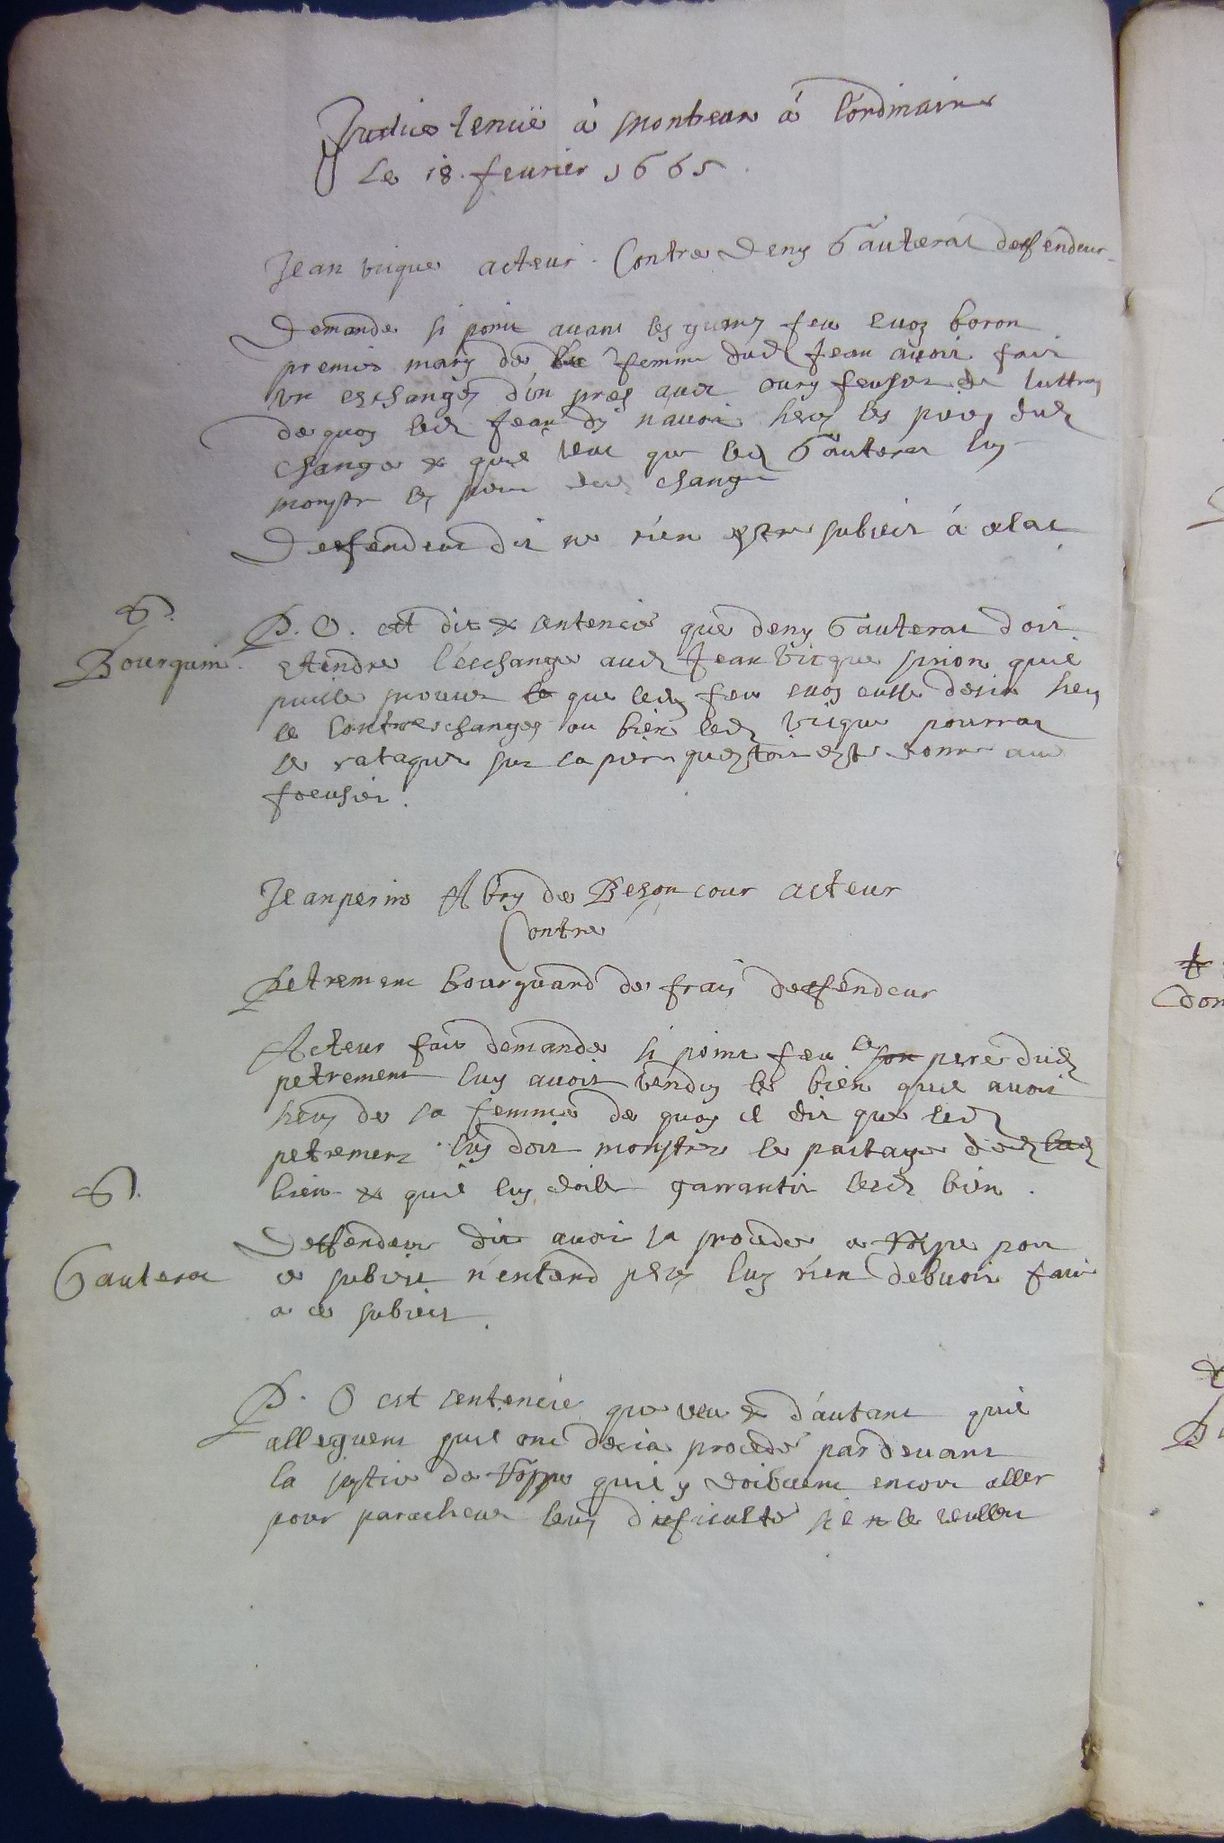 Justice tenüe à Montreux à l'ordinaire
Le 18. feurier 1665.
Jean vicque acteur. Contre Deny Gauterat deffendeur
Demande si point auant les guerres feu euoz boron
premier mary de la femme dud Jean auoir fait
vn eschange d'un prez auec oury feusier de luttran
de quoy led Jean dy n'auoir heu les piece dud
change & quil veut que led Gauterat luy
monstre les piece dud change
Deffendeur dit ne rien estre subiect à celat
P. O. est dit & sentencié que deny Gauterat doit
Bourquin
rtendre l'eschange aud Jean Vicque sinon quil
puisse prouuer que led feu euoz eusse desia heu
le Contreschange ou bien led vicque pourrat
se rataquer sur la piece questoit este donne aud
feusier.
Jeanperin Abry de Besoncour acteur
Contre
Petrement bourquard de frais deffendeur
Acteur fait demande si point feu le son pere dud
petrement luy auoir vendu les bien quil auoit
heu de sa femme de quoy il dit que led
petrement luy doit monstrer le partage desd
bien & quil luy doibt garrantir lesd bien.
Deffendeur dit auoir ja procedé a foppe pour
Gauterat
ce subiect n'entend luy rien debuoir faire
a ce subiect.
P. O est sentencié que veu & d'autant quil
alleguent quil ont desia procedé pardeuant
la justice de foppe quil y doibuent encor aller
pour paracheuer leur dificulté sil le veullent